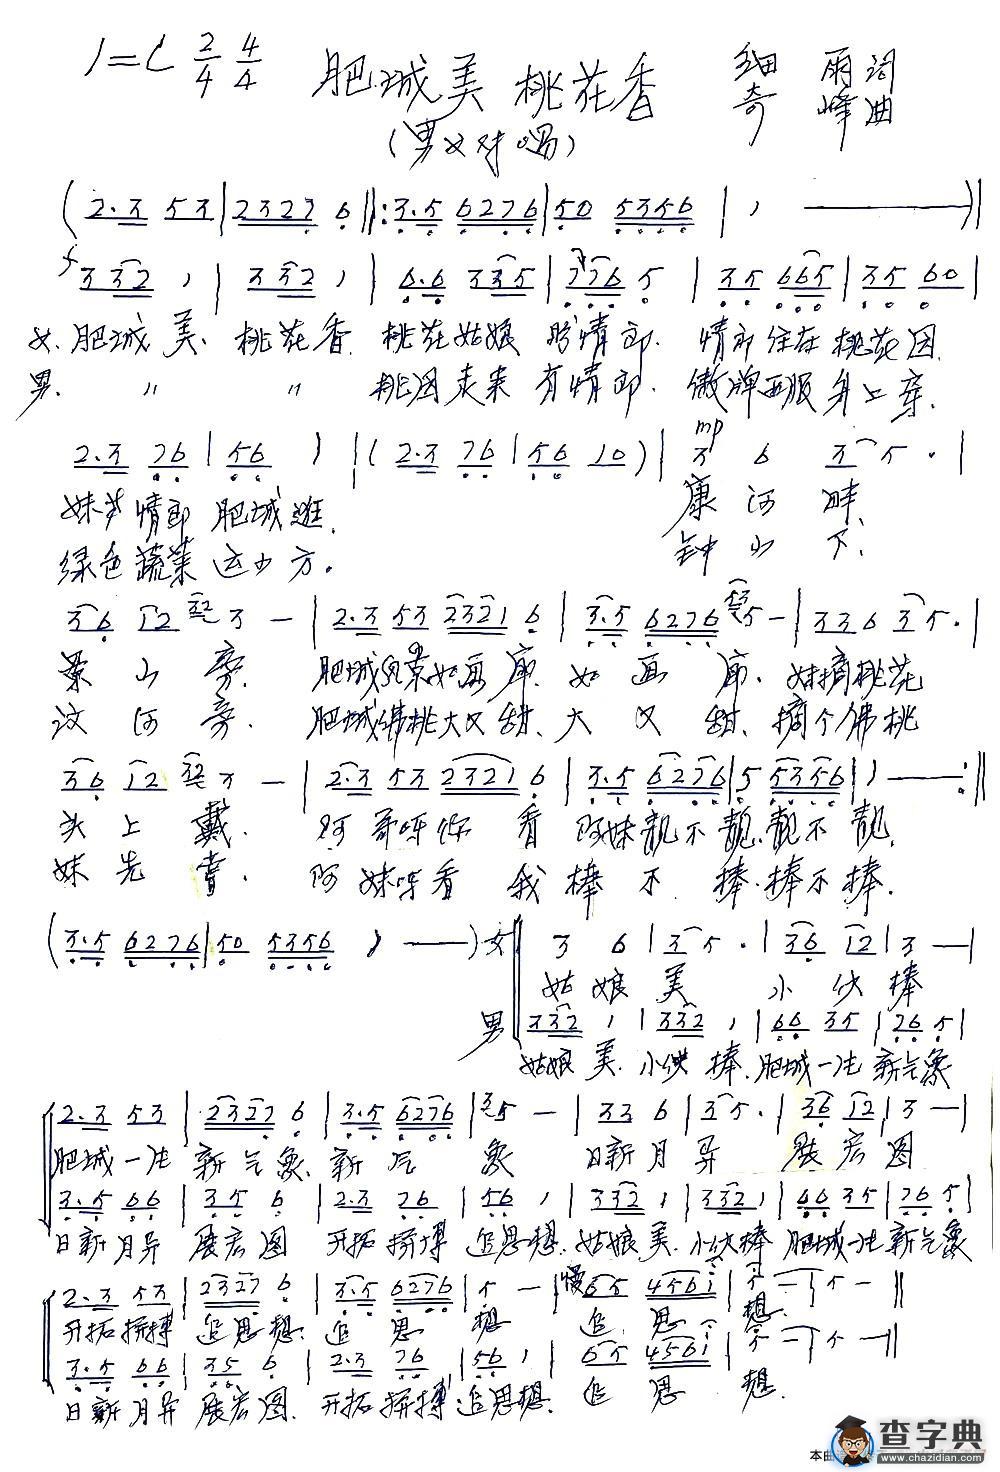 1=C 2/4 4/4 肥城美 桃花香 细雨词
(男女对唱) 奇峰曲
(2.3 53|2327 6‖:3.5 6276|50 5356|1 —)|
f 3 32 1|3 32 1|6.6 335|776 5|35 665|35 60|
女.肥城美.桃花香 桃花姑娘 情郎.情郎住在桃花园.
男. 〃 〃 桃园走来有情郎. 牌西服身上穿.
2.3 76|56 1|(2.3 76|56 10)|mp 3 6 3 5.|
妹 情郎肥城逛. 康河畔.
绿色蔬菜运四方. 钟山下.
36 12 32 3 —|2.3 53 2321 6|3.5 6276 5 —|336 35.|
景山旁. 肥城风景如画廊.如画廊.妹摘桃花
汶河旁. 肥城佛桃大又甜、大又甜、摘个佛桃
36 12 32 3 —|2.3 53 2321 6|3.5 6276|5 5356|1 —:‖
头上戴. 阿哥呀你看阿妹靓不靓.靓不靓.
妹先尝. 阿妹呀看我棒不棒.棒不棒.
(3.5 6276|50 5356 1 —)女 3 6|35.|36 12|3 —|
姑娘美 小伙棒
男 332 1|332 1|66 35|76 5|
姑娘美.小伙棒.肥城一派新气象
2.3 53|2327 6|3.5 6276|5 —|33 6|35.|36 12|3 —|
肥城一派新气象.新气象 日新月异展宏图
3.5 66|35 6|2.3 76|56 1|332 1|332 1|66 35|76 5|
日新月异展宏图 开拓拼搏追思想.姑娘美.小伙棒肥城一派新气象
2.3 53|2327 6|3.5 6276|5 —|慢 65 4561|5 —|5 —‖
开拓拼搏追思想.追思想 追思想.
3.5 66|35 6|2.3 76|56 1|65 4561|5 —|5 —‖
日新月异展宏图.开拓拼搏追思想.追思想.
本曲
查字典
www.chazidian.com